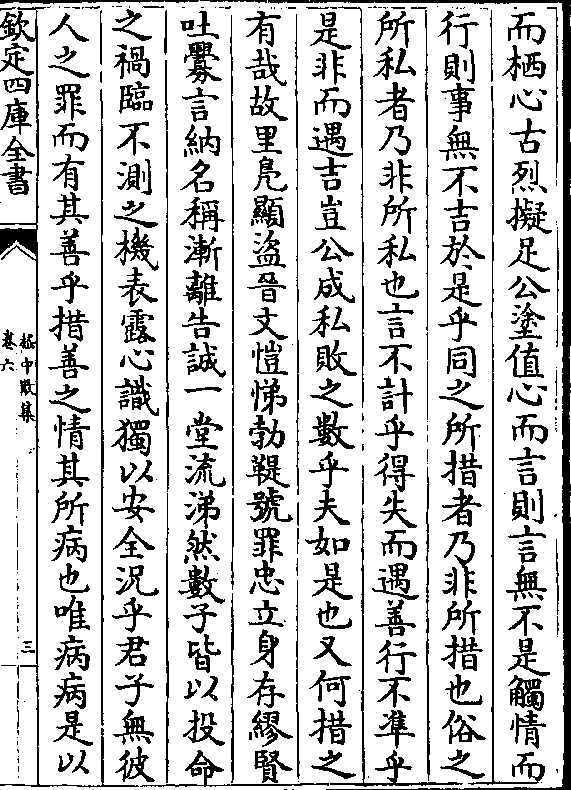 而栖心古烈擬足公塗值心而言則言無不是觸情而
行則事無不吉於是乎同之所措者乃非所措也俗之
所私者乃非所私也言不計乎得失而遇善行不準乎
是非而遇吉豈公成私敗之數乎夫如是也又何措之
有哉故里鳧顯盜晉文愷悌勃鞮號罪忠立身存繆賢
吐釁言納名稱漸離告誠一堂流涕然數子皆以投命
之禍臨不測之機表露心識獨以安全況乎君子無彼
人之罪而有其善乎措善之情其所病也唯病病是以
欽定四庫全書
嵇中散集
卷六
三